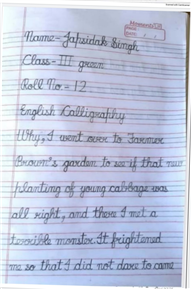 Name- Japsidak Singh
Class- III green
Roll No.- 12
English Calligraphy
Why, I went over to Farmer
Brown's garden to see if that new
planting of young cabbage was
all right, and there I met a
terrible monster It frightened
me so that I did not dare to come